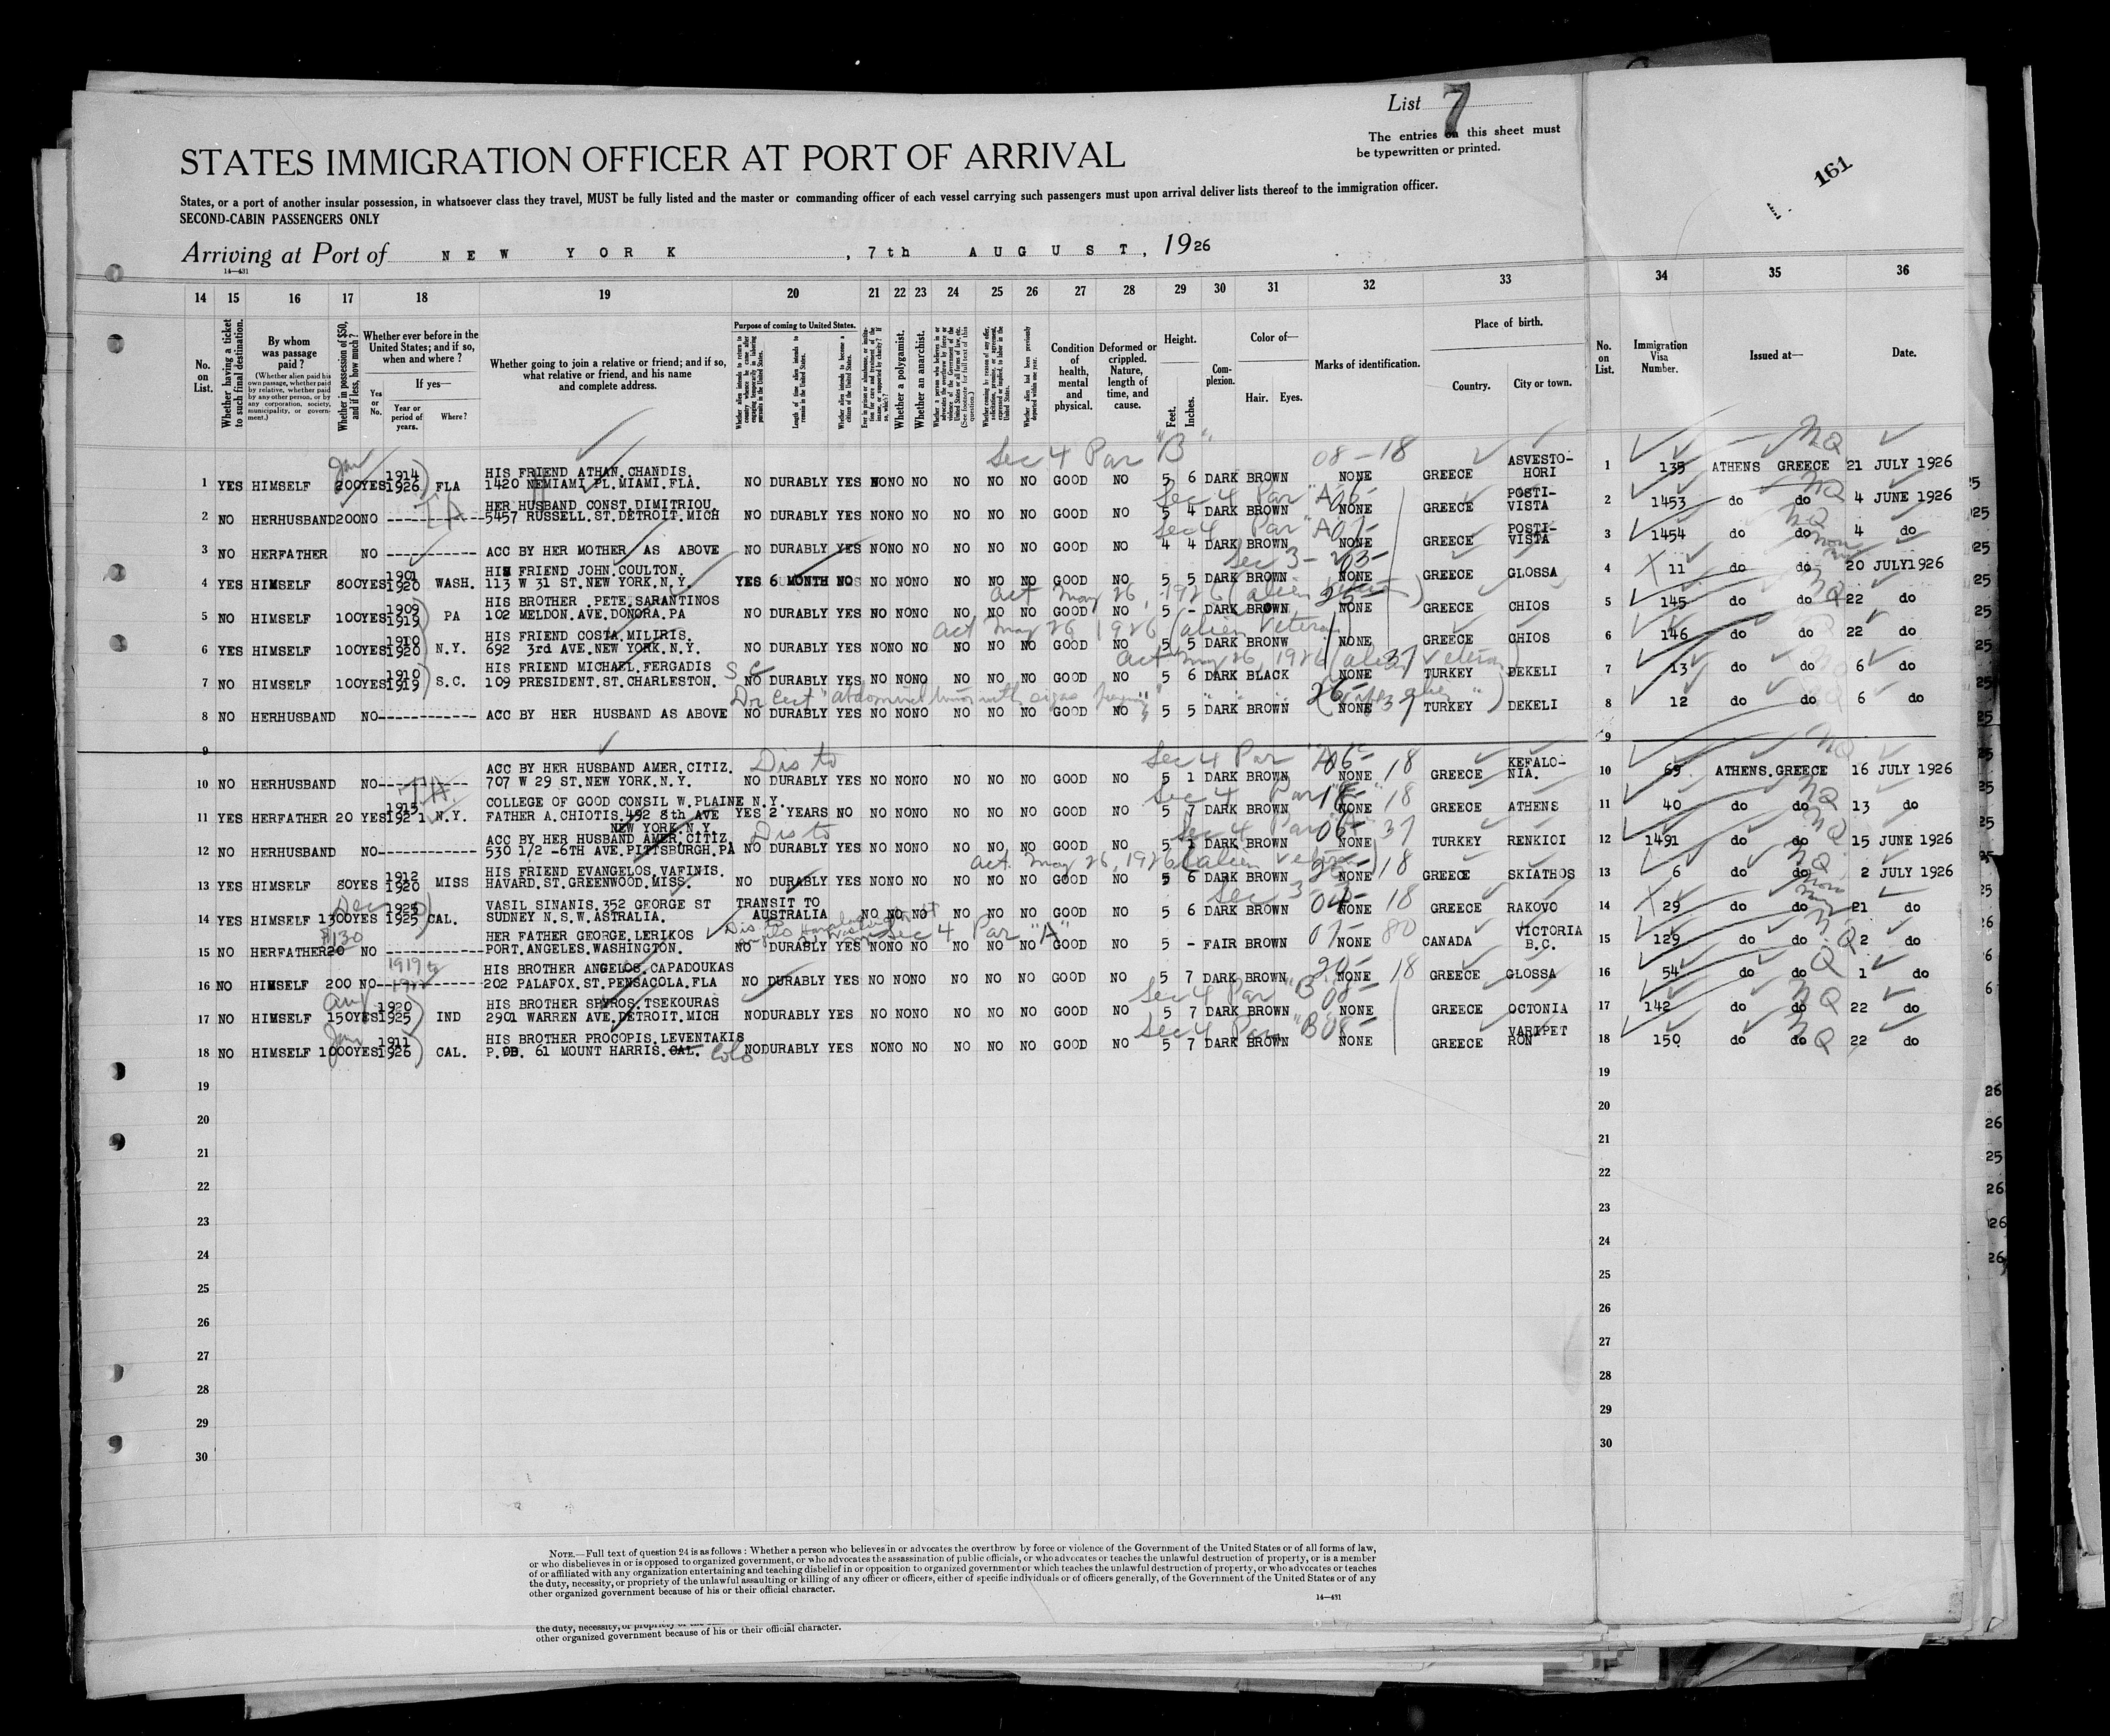 List 7
The entries on this sheet must
be typewritten or printed.
161
STATES IMMIGRATION OFFICER AT PORT OF ARRIVAL
States, or a port of another insular possession, in whatsoever class they travel, MUST be fully listed and the master or commanding officer of each vessel carrying such passengers must upon arrival deliver lists thereof to the immigration officer.
SECOND-CABIN PASSENGERS ONLY
Arriving at Port of NEW YORK, 7th AUGUST, 1926
14—431
14 15 16 17 18 19 20 21 22 23 24 25 26 27 28 29 30 31 32 33 34 35 36
No. on List.
Whether having a ticket to such final destination.
By whom was passage paid?
(Whether alien paid his own passage, whether paid by relative, whether paid by any other person, or by any corporation, society, municipality, or government.)
Whether in possession of $50, and if less, how much?
Whether ever before in the United States; and if so, when and where?
Yes or No.
If yes—
Year or period of years.
Where?
Whether going to join a relative or friend; and if so, what relative or friend, and his name and complete address.
Purpose of coming to United States.
Whether alien intends to return to country whence he came after engaging temporarily in laboring pursuits in the United States.
Length of time alien intends to remain in the United States.
Whether alien intends to become a citizen of the United States.
Whether a polygamist.
Whether an anarchist.
Condition of health, mental and physical.
Deformed or crippled. Nature, length of time, and cause.
Height.
Feet. Inches.
Complexion.
Color of—
Hair. Eyes.
Marks of identification.
Place of birth.
Country. City or town.
No. on List.
Immigration Visa Number.
Issued at—
Date.
Sec 4 Par "B" 08-18 NQ
Jan 1914 HIS FRIEND ATHAN.CHANDIS. ASVESTO-
1 YES HIMSELF 200 YES 1926 FLA 1420 NEMIAMI PL.MIAMI.FLA. NO DURABLY YES NO NO NO NO NO NO GOOD NO 5 6 DARK BROWN NONE GREECE HORI 1 135 ATHENS GREECE 21 JULY 1926
HER HUSBAND CONST.DIMITRIOU. Sec 4 Par "A" 06- POSTI- NQ
2 NO HERHUSBAND 200 NO ----------- 5457 RUSSELL.ST.DETROIT.MICH NO DURABLY YES NO NO NO NO NO NO GOOD NO 5 4 DARK BROWN NONE GREECE VISTA 2 1453 do do 4 JUNE 1926
Sec 4 Par "A" 07- POSTI- NQ
3 NO HERFATHER NO ----------- ACC BY HER MOTHER AS ABOVE NO DURABLY YES NO NO NO NO NO NO GOOD NO 4 4 DARK BROWN NONE GREECE VISTA 3 1454 do do 4 do
1901 HIS FRIEND JOHN.COULTON. Sec 3- 03-
4 YES HIMSELF 800 YES 1920 WASH. 113 W 31 ST.NEW YORK.N.Y. YES 6 MONTH NO NO NO NO NO NO NO GOOD NO 5 5 DARK BROWN NONE GREECE GLOSSA 4 11 do do 20 JULY 1926
1909 HIS BROTHER .PETE.SARANTINOS act May 26, 1926 (alien veteran) NQ
5 NO HIMSELF 100 YES 1919 PA 102 MELDON.AVE.DONORA.PA NO DURABLY YES NO NO NO NO NO NO GOOD NO 5 - DARK BROWN NONE GREECE CHIOS 5 145 do do 22 do
1910 HIS FRIEND COSTA.MILIRIS. act May 26 1926 (alien veteran)
6 YES HIMSELF 100 YES 1920 N.Y. 692 3rd AVE.NEW YORK.N.Y. NO DURABLY YES NO NO NO NO NO NO GOOD NO 5 5 DARK BRONW NONE GREECE CHIOS 6 146 do do 22 do
1910 HIS FRIEND MICHAEL.FERGADIS act May 26, 1926 (alien veteran) 37
7 NO HIMSELF 100 YES 1919 S.C. 109 PRESIDENT.ST.CHARLESTON. S.C. NO DURABLY YES NO NO NO NO NO NO GOOD NO 5 6 DARK BLACK NONE TURKEY DEKELI 7 13 do do 6 do
Dr Cert "abdominal tumor with signs 37
8 NO HERHUSBAND NO ------------ ACC BY HER HUSBAND AS ABOVE NO DURABLY YES NO NO NO NO NO NO GOOD NO 5 5 DARK BROWN NONE TURKEY DEKELI 8 12 do do 6 do
9 9
ACC BY HER HUSBAND AMER.CITIZ. Dis to Sec 4 Par "A" 06- 18 KEFALO- NQ
10 NO HERHUSBAND NO ------------ 707 W 29 ST.NEW YORK.N.Y. NO DURABLY YES NO NO NO NO NO NO GOOD NO 5 1 DARK BROWN NONE GREECE NIA. 10 69 ATHENS.GREECE 16 JULY 1926
1915 COLLEGE OF GOOD CONSIL W.PLAINE N.Y. Sec 4 Par 18 NQ
11 YES HERFATHER 20 YES 1921 N.Y. FATHER A.CHIOTIS.492 8th AVE YES 2 YEARS NO NO NO NO NO NO NO GOOD NO 5 7 DARK BROWN NONE GREECE ATHENS 11 40 do do 13 do
NEW YORK.N.Y.
ACC BY HER HUSBAND AMER.CITIZ. Dis to Sec 4 Par 06- 37 NQ
12 NO HERHUSBAND NO ------------ 530 1/2 -6TH AVE.PITTSBURGH.PA NO DURABLY YES NO NO NO NO NO NO GOOD NO 5 1 DARK BROWN NONE TURKEY RENKIOI 12 1491 do do 15 JUNE 1926
1912 HIS FRIEND EVANGELOS.VAFINIS. act. May 26, 1926 (alien veteran) 18 NQ
13 YES HIMSELF 80 YES 1920 MISS HAVARD.ST.GREENWOOD.MISS. NO DURABLY YES NO NO NO NO NO NO GOOD NO 5 6 DARK BROWN NONE GREECE SKIATHOS 13 6 do do 2 JULY 1926
Dec 1925 VASIL SINANIS.352 GEORGE ST TRANSIT TO Sec 3- 04- 18
14 YES HIMSELF 1300 YES 1925 CAL. SUDNEY N.S.W.ASTRALIA. AUSTRALIA NO NO NO NO NO NO GOOD NO 5 6 DARK BROWN NONE GREECE RAKOVO 14 29 do do 21 do
$130 HER FATHER GEORGE.LERIKOS Dis to Sec 4 Par "A" 07- 80 VICTORIA NQ
15 NO HERFATHER 20 NO ------------ PORT.ANGELES.WASHINGTON. NO DURABLY YES NO NO NO NO NO NO GOOD NO 5 - FAIR BROWN NONE CANADA B.C. 15 129 do do 2 do
1919 to HIS BROTHER ANGELOS.CAPADOUKAS 20- 18 Q
16 NO HIMSELF 200 NO ------------ 202 PALAFOX.ST.PENSACOLA.FLA NO DURABLY YES NO NO NO NO NO NO GOOD NO 5 7 DARK BROWN NONE GREECE GLOSSA 16 54 do do 1 do
Aug 1920 HIS BROTHER SPYROS.TSEKOURAS Sec 4 Par "B" 08- NQ
17 NO HIMSELF 150 YES 1925 IND 2901 WARREN AVE.DETROIT.MICH NO DURABLY YES NO NO NO NO NO NO GOOD NO 5 7 DARK BROWN NONE GREECE OCTONIA 17 142 do do 22 do
Jan 1911 HIS BROTHER PROCOPIS.LEVENTAKIS Sec 4 Par "B" 08- VARIPET NQ
18 NO HIMSELF 1000 YES 1926 CAL. P.OB. 61 MOUNT HARRIS.CAL. Colo NO DURABLY YES NO NO NO NO NO NO GOOD NO 5 7 DARK BROWN NONE GREECE RON 18 150 do do 22 do
19 19
20 20
21 21
22 22
23 23
24 24
25 25
26 26
27 27
28 28
29 29
30 30
NOTE.—Full text of question 24 is as follows: Whether a person who believes in or advocates the overthrow by force or violence of the Government of the United States or of all forms of law,
or who disbelieves in or is opposed to organized government, or who advocates the assassination of public officials, or who advocates or teaches the unlawful destruction of property, or is a member
of or affiliated with any organization entertaining and teaching disbelief in or opposition to organized government or which teaches the unlawful destruction of property, or who advocates or teaches
the duty, necessity, or propriety of the unlawful assaulting or killing of any officer or officers, either of specific individuals or of officers generally, of the Government of the United States or of any
other organized government because of his or their official character.
14—431
the duty, necessity, or propriety of the
other organized government because of his or their official character.